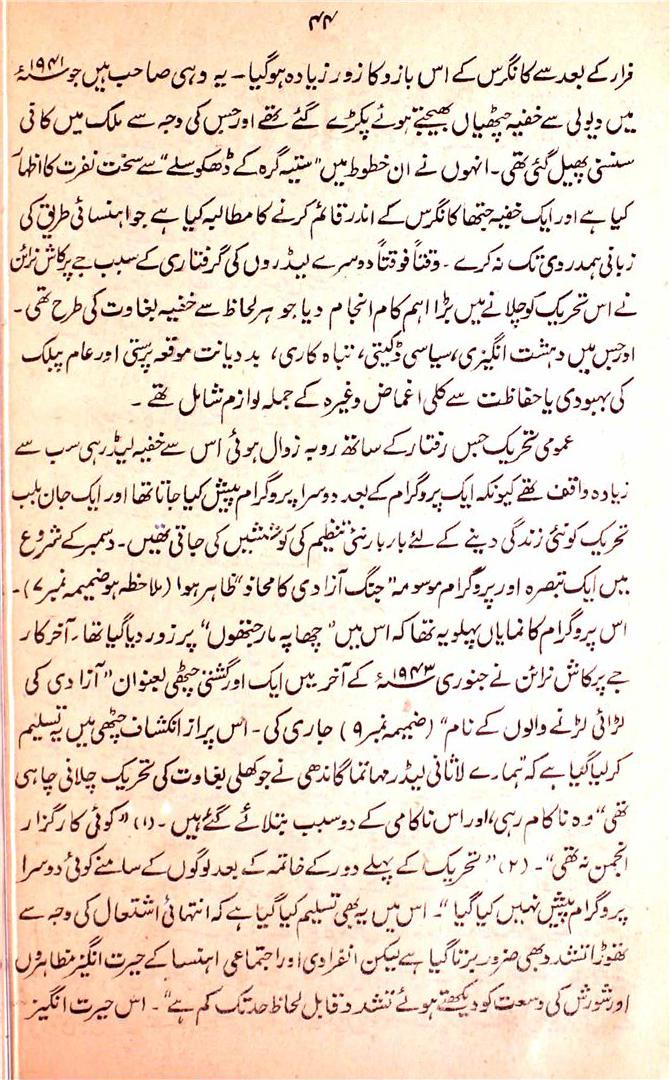 ۴۴
فرار کے بعد سے کانگرس کے اس بازو کا زور زیادہ ہوگیا۔ یہ وہی صاحب ہیں جو ۱۹۴۱ء
میں دیولی سے خفیہ چٹھیاں بھیجتے ہوئے پکڑے گئے تھے اور جس کی وجہ سے ملک میں کافی
سنسنی پھیل گئی تھی۔ انہوں نے ان خطوط میں "ستیہ گرہ کے ڈھکوسلے" سے سخت نفرت کا اظہار
کیا ہے اور ایک خفیہ جتھا کانگرس کے اندر قائم کرنے کا مطالبہ کیا ہے جو اہنسائی طریق کی
زبانی ہمدردی تک نہ کرے۔ وقتاً فوقتاً دوسرے لیڈروں کی گرفتاری کے سبب جے پرکاش نرائن
نے اس تحریک کو چلانے میں بڑا اہم کام انجام دیا جو ہر لحاظ سے خفیہ بغاوت کی طرح تھی۔
اور جس میں دہشت انگیزی، سیاسی ڈکیتی، تباہ کاری، بد دیانت موقعہ پرستی اور عام پبلک
کی بہبودی یا حفاظت سے کلی اغماض وغیرہ کے جملہ لوازم شامل تھے۔
عمومی تحریک جس رفتار کے ساتھ روبہ زوال ہوئی اس سے خفیہ لیڈر ہی سب سے
زیادہ واقف تھے کیونکہ ایک پروگرام کے بعد دوسرا پروگرام پیش کیا جاتا تھا اور ایک جان بلب
تحریک کو نئی زندگی دینے کے لئے بار بار نئی تنظیم کی کوششیں کی جاتی تھیں۔ دسمبر کے شروع
میں ایک تبصرہ اور پروگرام موسومہ "جنگ آزادی کا محاذ" ظاہر ہوا (ملاحظہ ہو ضمیمہ نمبر ۷)۔
اس پروگرام کا نمایاں پہلو یہ تھا کہ اس میں "چھاپہ مار جتھوں" پر زور دیا گیا تھا۔ آخر کار
جے پرکاش نرائن نے جنوری ۱۹۴۳ء کے آخر میں ایک اور گشتی چٹھی بعنوان "آزادی کی
لڑائی لڑنے والوں کے نام" (ضمیمہ نمبر ۹) جاری کی۔ اس پراز انکشاف چٹھی میں یہ تسلیم
کر لیا گیا ہے کہ "ہمارے لاثانی لیڈر مہاتما گاندھی نے جو کھلی بغاوت کی تحریک چلانی چاہی
تھی" وہ ناکام رہی، اور اس ناکامی کے دو سبب بتلائے گئے ہیں۔ (۱) "کوئی کارگزار
انجمن نہ تھی"۔ (۲) "تحریک کے پہلے دور کے خاتمہ کے بعد لوگوں کے سامنے کوئی دوسرا
پروگرام پیش نہیں کیا گیا"۔ اس میں یہ بھی تسلیم کیا گیا ہے کہ انتہائی اشتعال کی وجہ سے
تھوڑا تشدد بھی ضرور برتا گیا ہے لیکن انفرادی اور اجتماعی اہنسا کے حیرت انگیز مظاہروں
اور شورش کی وسعت کو دیکھتے ہوئے تشدد ناقابل لحاظ حد تک کم ہے"۔ اس حیرت انگیز